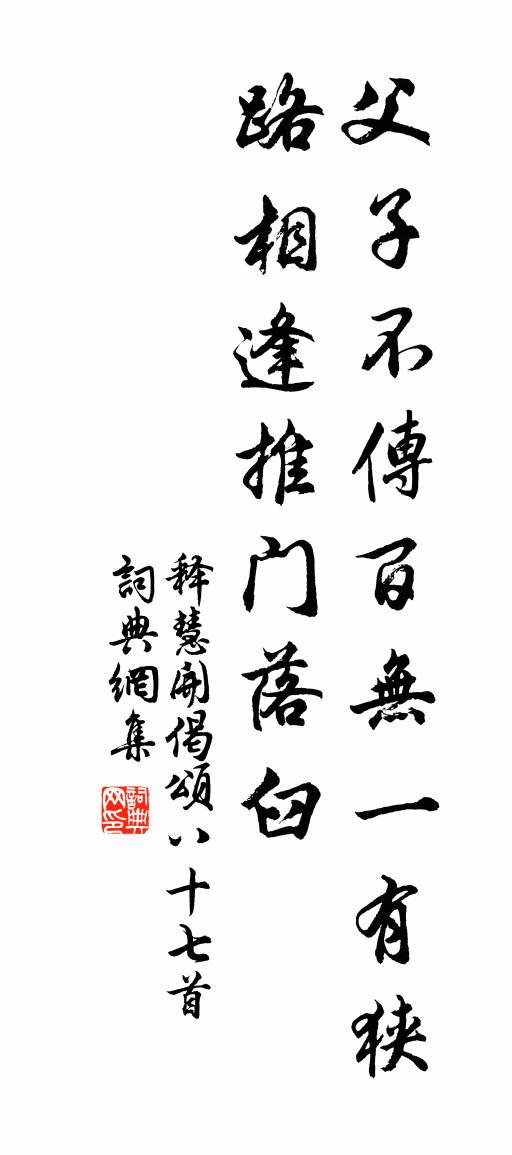 父子不傳百無一有狹
路相逢推门落臼
释慧開偈頌八十七首
詞典網集
詞典网印